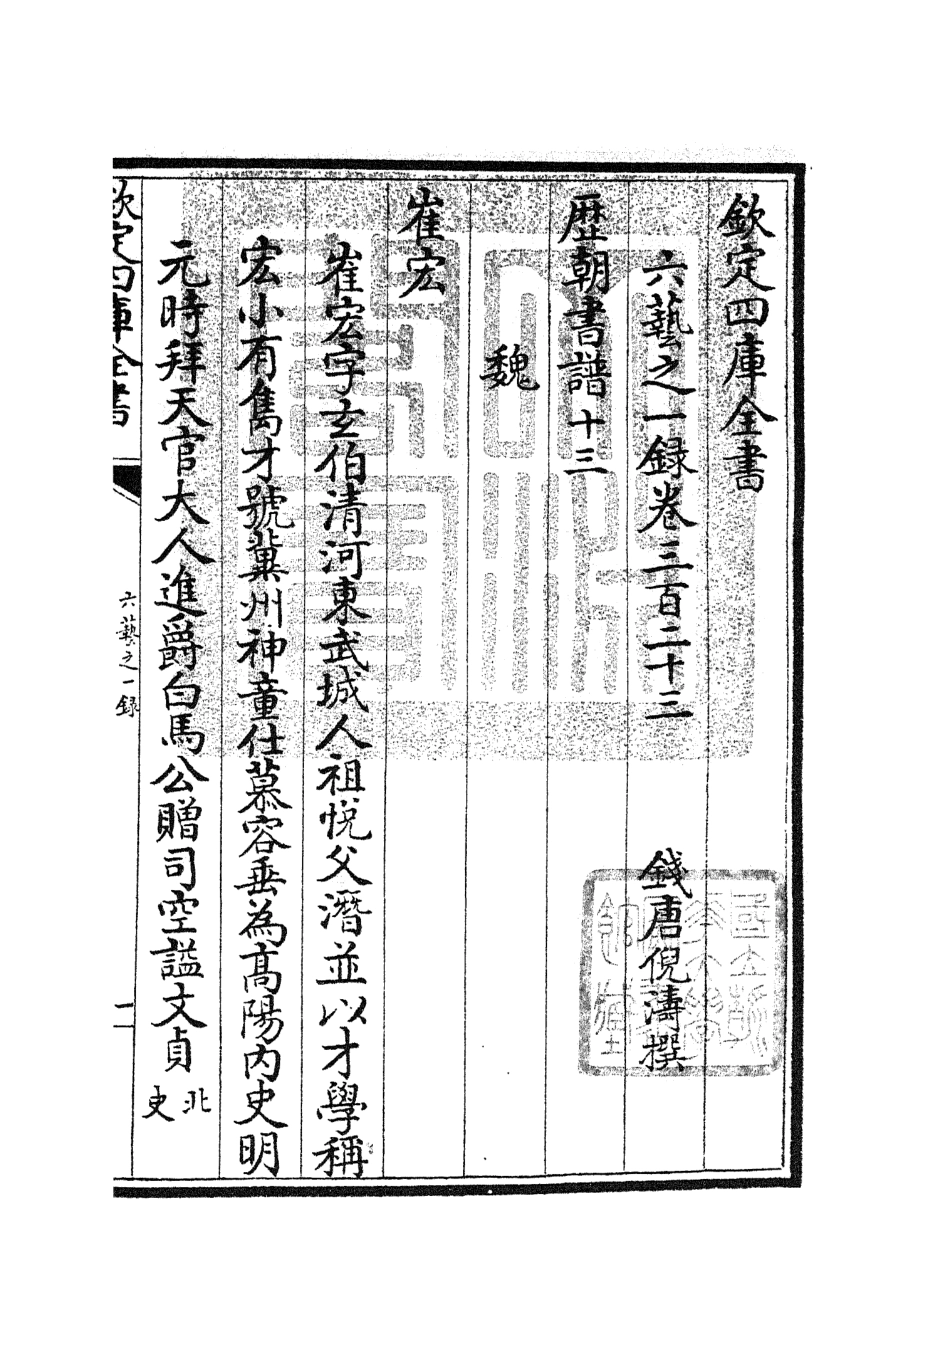 欽定四庫全書
六藝之一録卷三百二十二　錢唐倪濤撰
歴朝書譜十三
魏
崔宏
崔宏字玄伯清河東武城人祖悅父潛並以才學稱
宏小有雋才號冀州神童仕慕容垂為髙陽内史明
元時拜天官大人進爵白馬公贈司空謚文貞北史
欽定四庫全書
六藝之一録